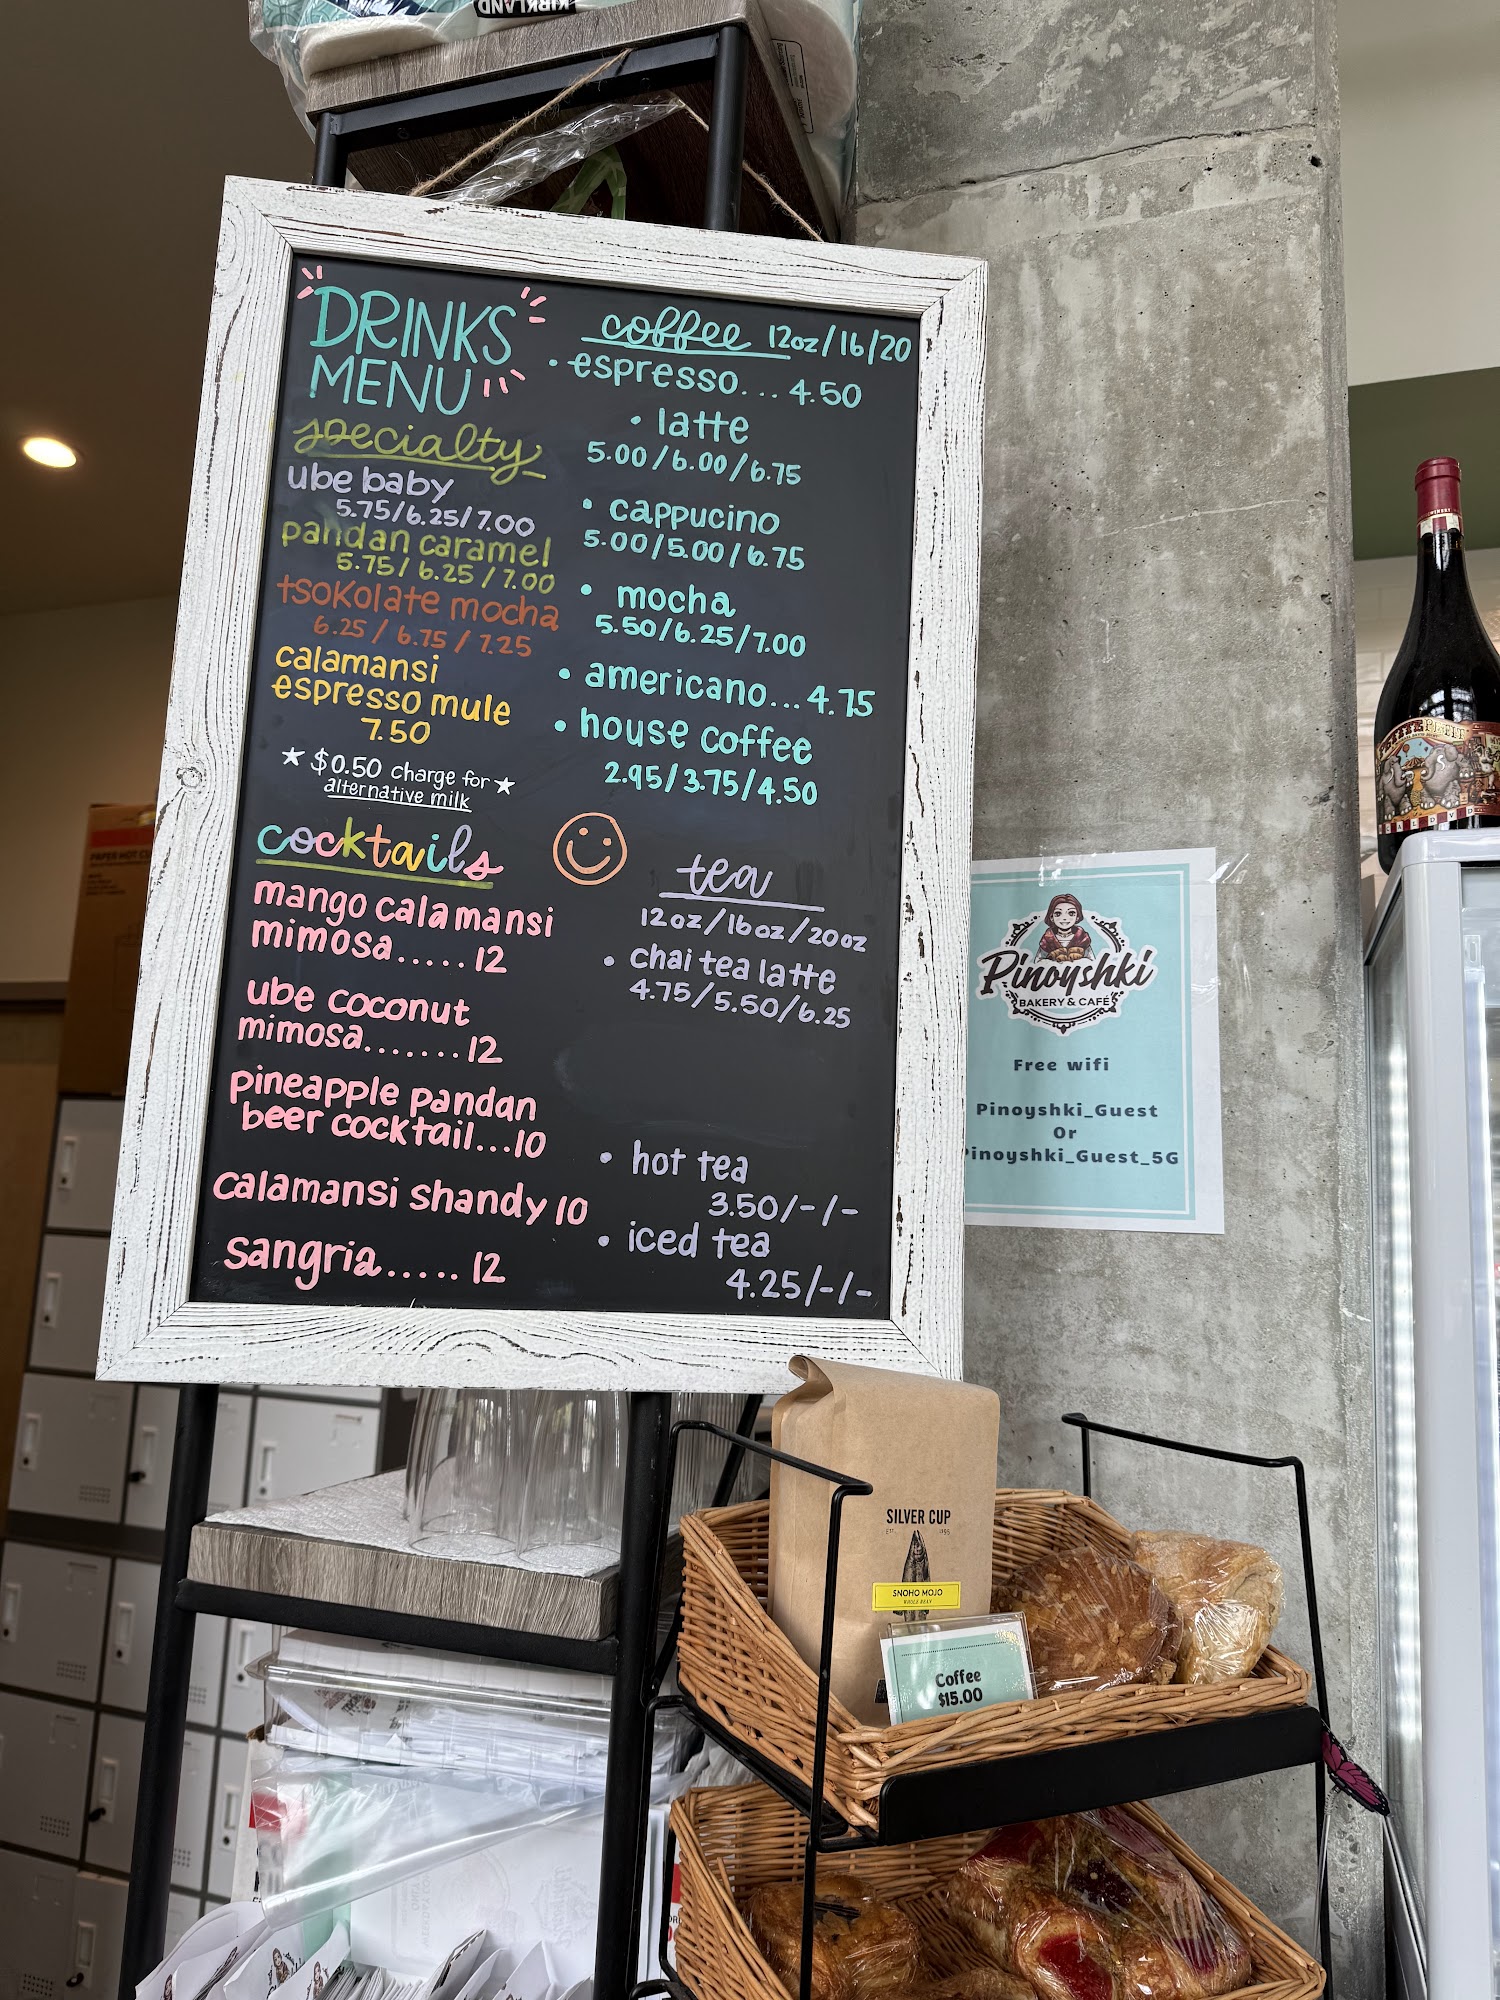 KIRKLAND
DRINKS
MENU
specialty
ube baby
5.75/6.25/7.00
pandan caramel
5.75/6.25/7.00
tsokolate mocha
6.25/6.75/7.25
calamansi
espresso mule
7.50
★ $0.50 charge for ★
alternative milk
cocktails
mango calamansi
mimosa.....12
ube coconut
mimosa.......12
pineapple pandan
beer cocktail...10
calamansi shandy 10
sangria.....12
coffee 12oz/16/20
• espresso...4.50
• latte
5.00/6.00/6.75
• cappucino
5.00/5.00/6.75
• mocha
5.50/6.25/7.00
• americano...4.75
• house coffee
2.95/3.75/4.50
tea
12oz/16oz/20oz
• chai tea latte
4.75/5.50/6.25
• hot tea
3.50/-/-
• iced tea
4.25/-/-
Pinoyshki
BAKERY & CAFÉ
Free wifi
Pinoyshki_Guest
Or
Pinoyshki_Guest_5G
PETITE PETIT
PAPER HOT
SILVER CUP
SNOHO MOJO
WHOLE BEAN
Coffee
$15.00